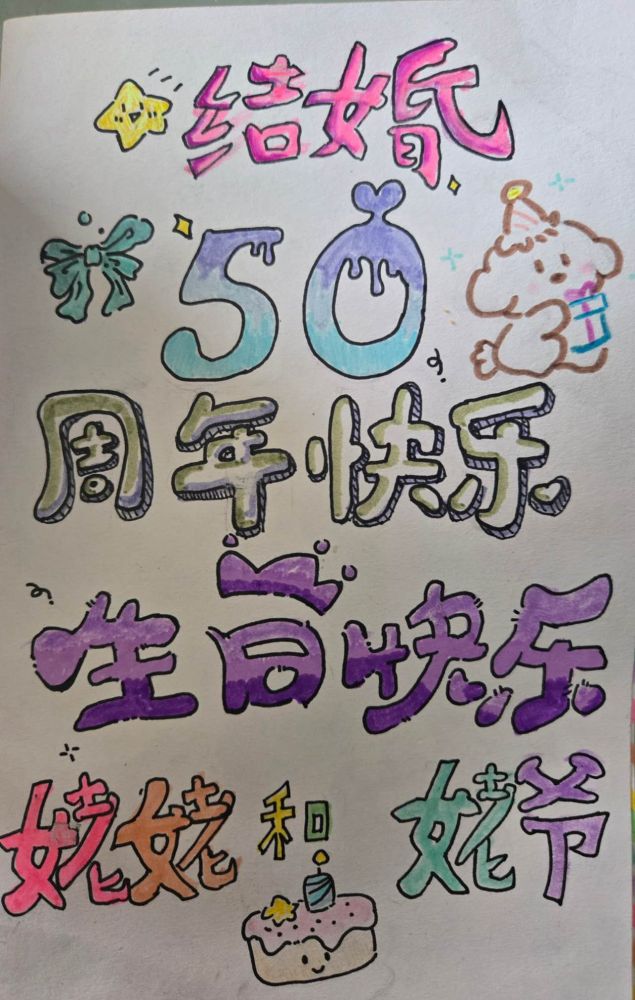 结婚
50
周年快乐
生日快乐
姥姥和姥爷